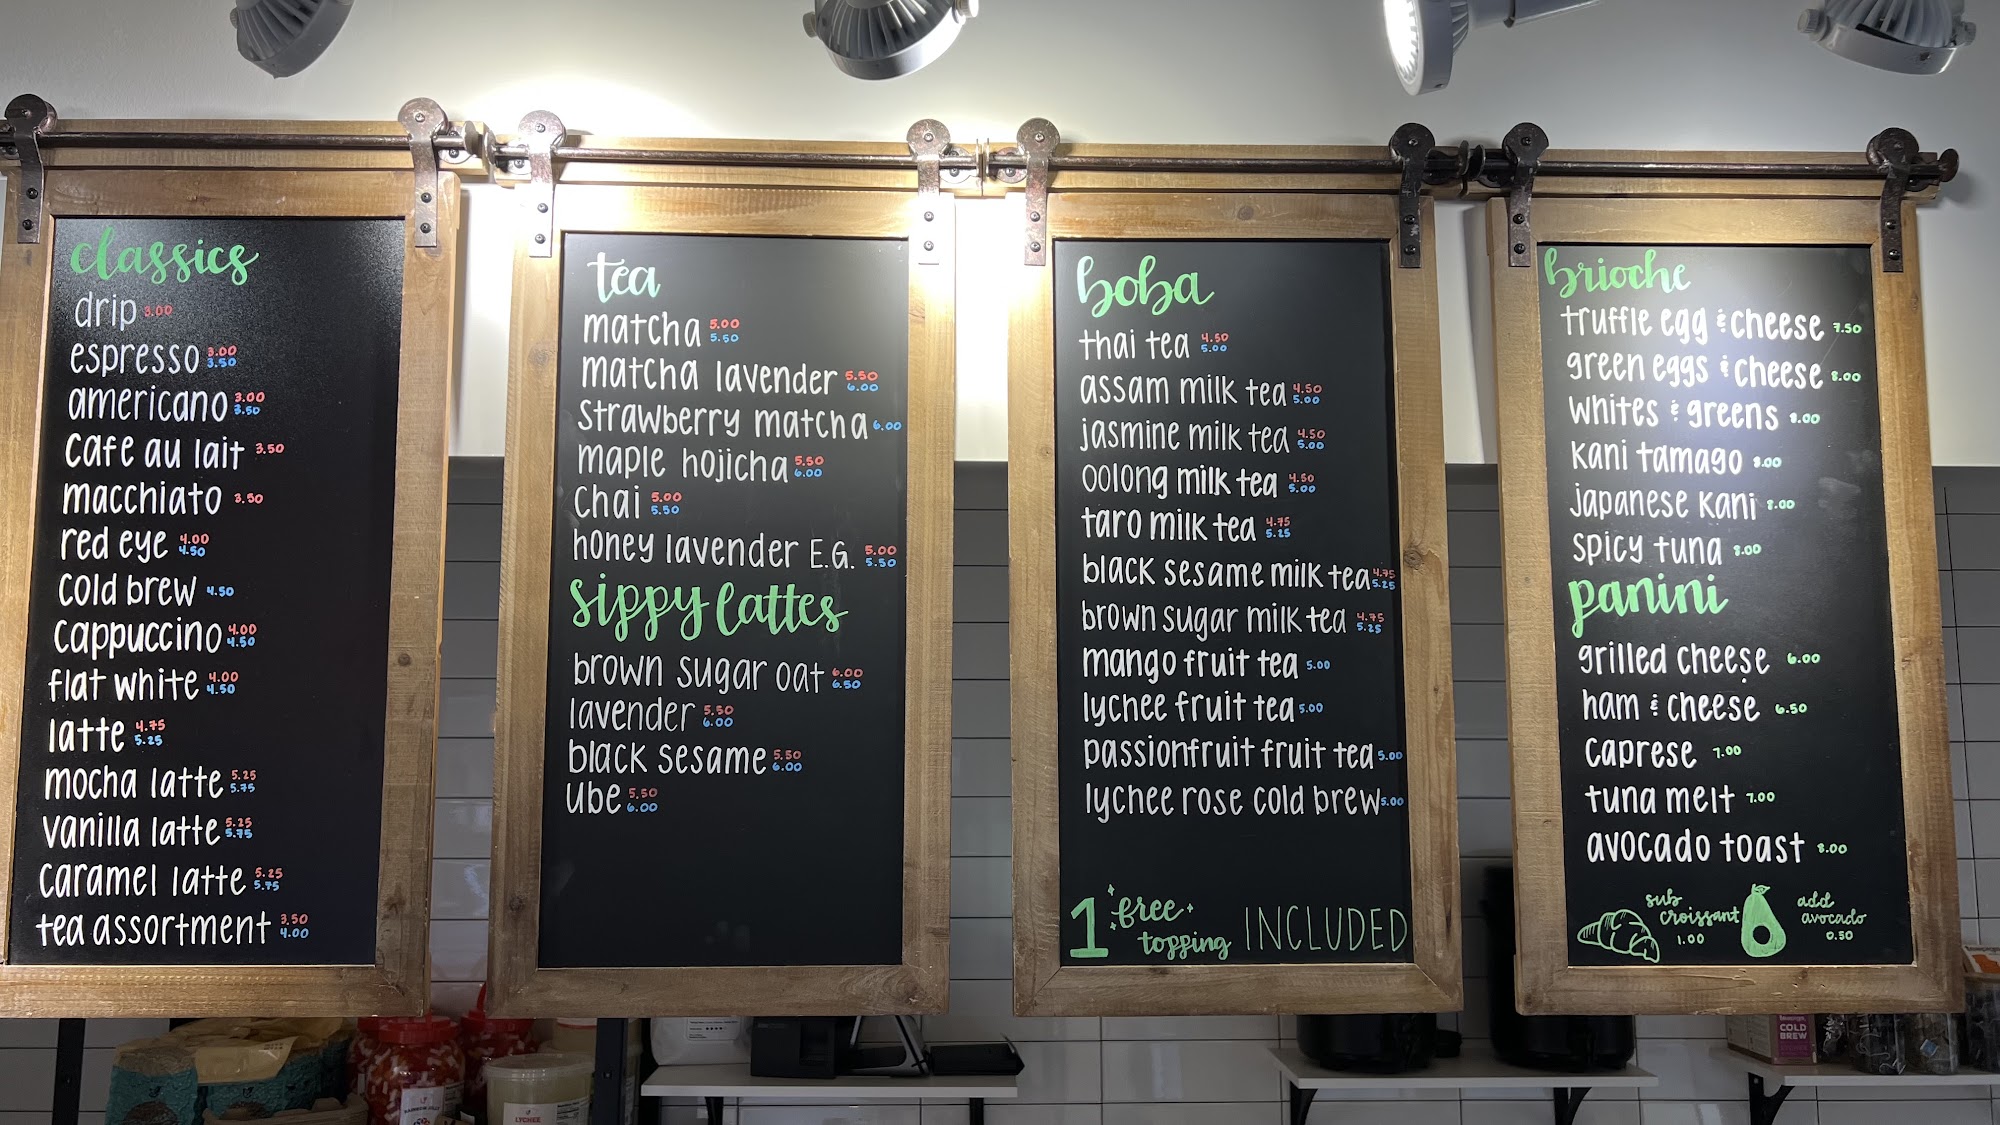 classics
drip 3.00
espresso 3.00 3.50
americano 3.00 3.50
cafe au lait 3.50
macchiato 3.50
red eye 4.00 4.50
cold brew 4.50
cappuccino 4.00 4.50
flat white 4.00 4.50
latte 4.75 5.25
mocha latte 5.25 5.75
vanilla latte 5.25 5.75
caramel latte 5.25 5.75
tea assortment 3.50 4.00
tea
matcha 5.00 5.50
matcha lavender 5.50 6.00
strawberry matcha 6.00
maple hojicha 5.50 6.00
chai 5.00 5.50
honey lavender E.G. 5.00 5.50
sippy lattes
brown sugar oat 6.00 6.50
lavender 5.50 6.00
black sesame 5.50 6.00
ube 5.50 6.00
boba
thai tea 4.50 5.00
assam milk tea 4.50 5.00
jasmine milk tea 4.50 5.00
oolong milk tea 4.50 5.00
taro milk tea 4.75 5.25
black sesame milk tea 4.75 5.25
brown sugar milk tea 4.75 5.25
mango fruit tea 5.00
lychee fruit tea 5.00
passionfruit fruit tea 5.00
lychee rose cold brew 5.00
1 free topping INCLUDED
brioche
truffle egg & cheese 7.50
green eggs & cheese 8.00
whites & greens 8.00
kani tamago 8.00
japanese kani 8.00
spicy tuna 8.00
panini
grilled cheese 6.00
ham & cheese 6.50
caprese 7.00
tuna melt 7.00
avocado toast 8.00
sub croissant 1.00
add avocado 0.50
RAINBOW JELLY
LYCHEE
COLD BREW